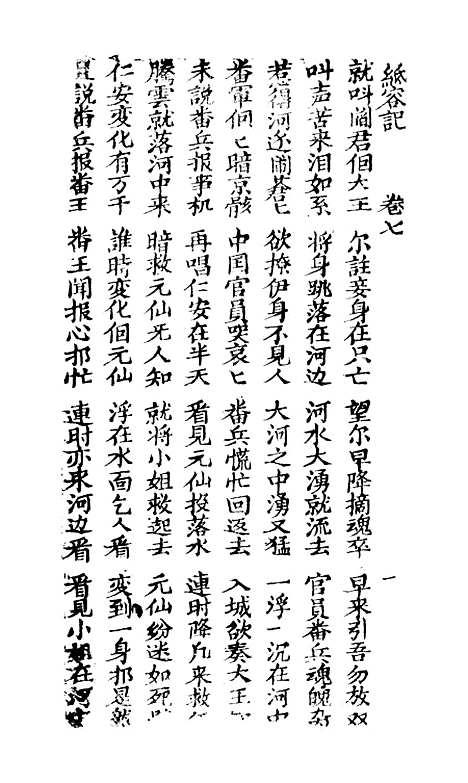 紙容記 卷七 一
就叫閻君佪大王 尔註妾身在只亡 望尔早降摘魂卒 早来引吾勿放双
叫声苦来泪如系 将身跳落在河边 河水大湧就流去 官員番兵魂魄散
惹得河边闹匕 欲撩伊身不見人 大河之中湧又猛 一浮一沉在河中
番軍佪匕暗京骸 中国官員哭哀匕 番兵慌忙回返去 入城欲奏大王
未説番兵报事机 再唱仁安在半天 看見元仙投落水 連时降凡来救
騰雲就落河中来 暗救元仙旡人知 就将小姐救起去 元仙纷迷如死
仁安变化有万千 誰時变化佪元仙 浮在水面乞人看 变到一身扔是然
説番兵报番王 番王闻报心扔忙 連时亦来河边看 看見小姐在河